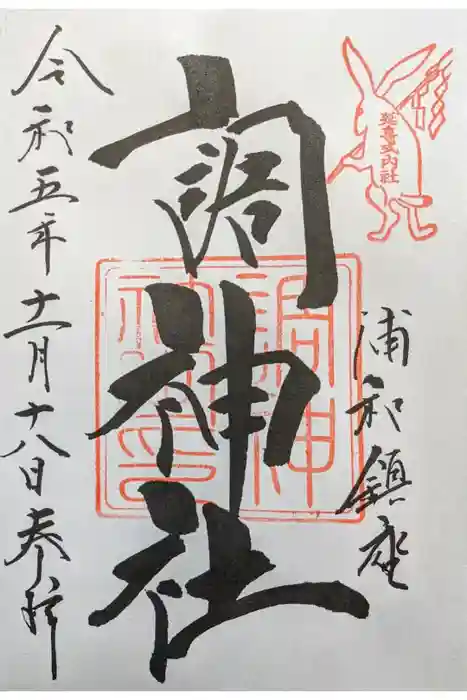 延喜式内社
浦和鎮座
調神社
調神社印
令和五年十一月十八日奉拝